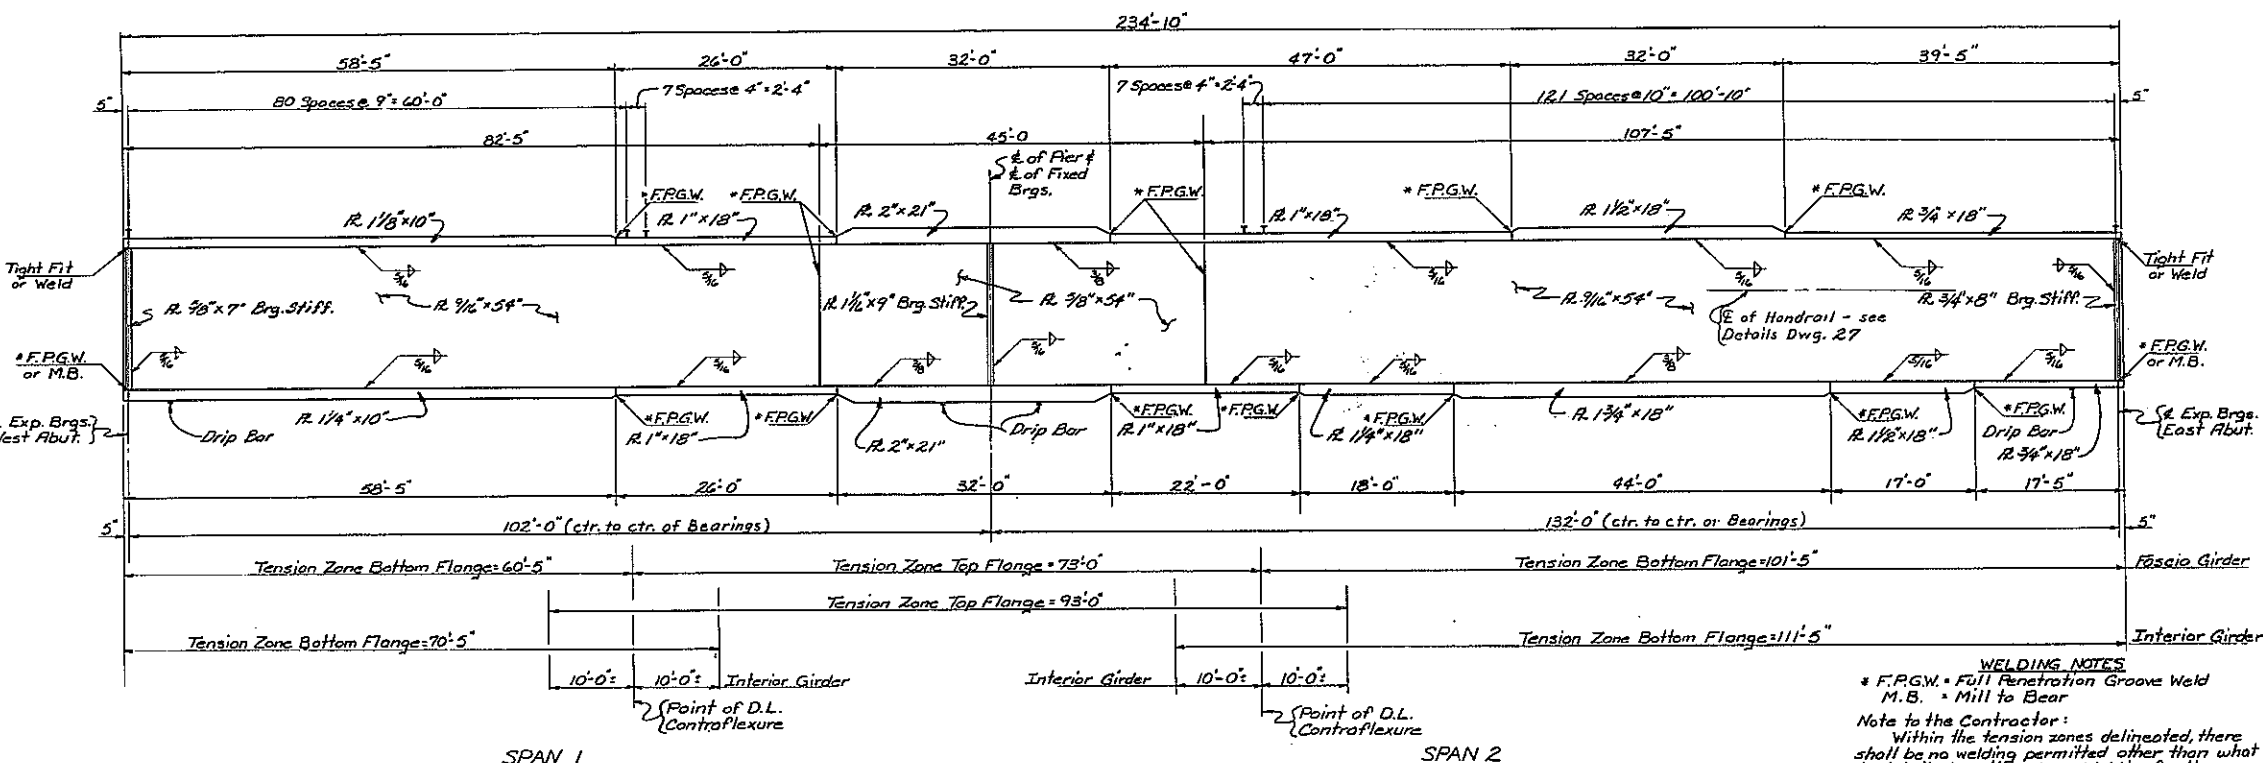 234'-10"
58'-5" 26'-0" 32'-0" 47'-0" 32'-0" 39'-5"
5" 80 Spaces @ 9" = 60'-0" 7 Spaces @ 4" = 2'-4" 7 Spaces @ 4" = 2'-4" 121 Spaces @ 10" = 100'-10" 5"
82'-5" 45'-0 107'-5"
℄ of Pier &
℄ of Fixed
Brgs.
* F.P.G.W. * F.P.G.W. * F.P.G.W. * F.P.G.W. * F.P.G.W.
℞ 1 1/8" x 10" ℞ 1" x 18" ℞ 2" x 21" ℞ 1" x 18" ℞ 1 1/2" x 18" ℞ 3/4" x 18"
Tight Fit
or Weld
5/16 5/16 3/8 5/16 5/16 5/16 5/16
Tight Fit
or Weld
℞ 5/8" x 7" Brg. Stiff. ℞ 9/16" x 54" ℞ 1 1/16" x 9" Brg. Stiff. ℞ 5/8" x 54" ℞ 9/16" x 54" ℞ 3/4" x 8" Brg. Stiff.
℄ of Handrail - see
Details Dwg. 27
* F.P.G.W.
or M.B.
5/16 5/16 5/16 3/8 5/16 5/16 5/16 3/8 5/16 5/16
* F.P.G.W.
or M.B.
Exp. Brgs.
West Abut.
Drip Bar ℞ 1 1/4" x 10" * F.P.G.W. ℞ 1" x 18" * F.P.G.W. ℞ 2" x 21" Drip Bar * F.P.G.W. ℞ 1" x 18" * F.P.G.W. ℞ 1 1/4" x 18" * F.P.G.W. ℞ 1 3/4" x 18" * F.P.G.W. ℞ 1 1/2" x 18" * F.P.G.W. Drip Bar ℞ 3/4" x 18"
℄ Exp. Brgs.
East Abut.
58'-5" 26'-0" 32'-0" 22'-0" 18'-0" 44'-0" 17'-0" 17'-5"
5" 102'-0" (ctr. to ctr. of Bearings) 132'-0" (ctr. to ctr. of Bearings) 5"
Tension Zone Bottom Flange = 60'-5" Tension Zone Top Flange = 73'-0" Tension Zone Bottom Flange = 101'-5" Fascia Girder
Tension Zone Top Flange = 93'-0"
Tension Zone Bottom Flange = 70'-5" Tension Zone Bottom Flange = 111'-5" Interior Girder
10'-0"± 10'-0"± Interior Girder Interior Girder 10'-0"± 10'-0"±
Point of D.L.
Contraflexure
Point of D.L.
Contraflexure
SPAN 1 SPAN 2
WELDING NOTES
* F.P.G.W. = Full Penetration Groove Weld
M.B. = Mill to Bear
Note to the Contractor:
Within the tension zones delineated, there
shall be no welding permitted other than what